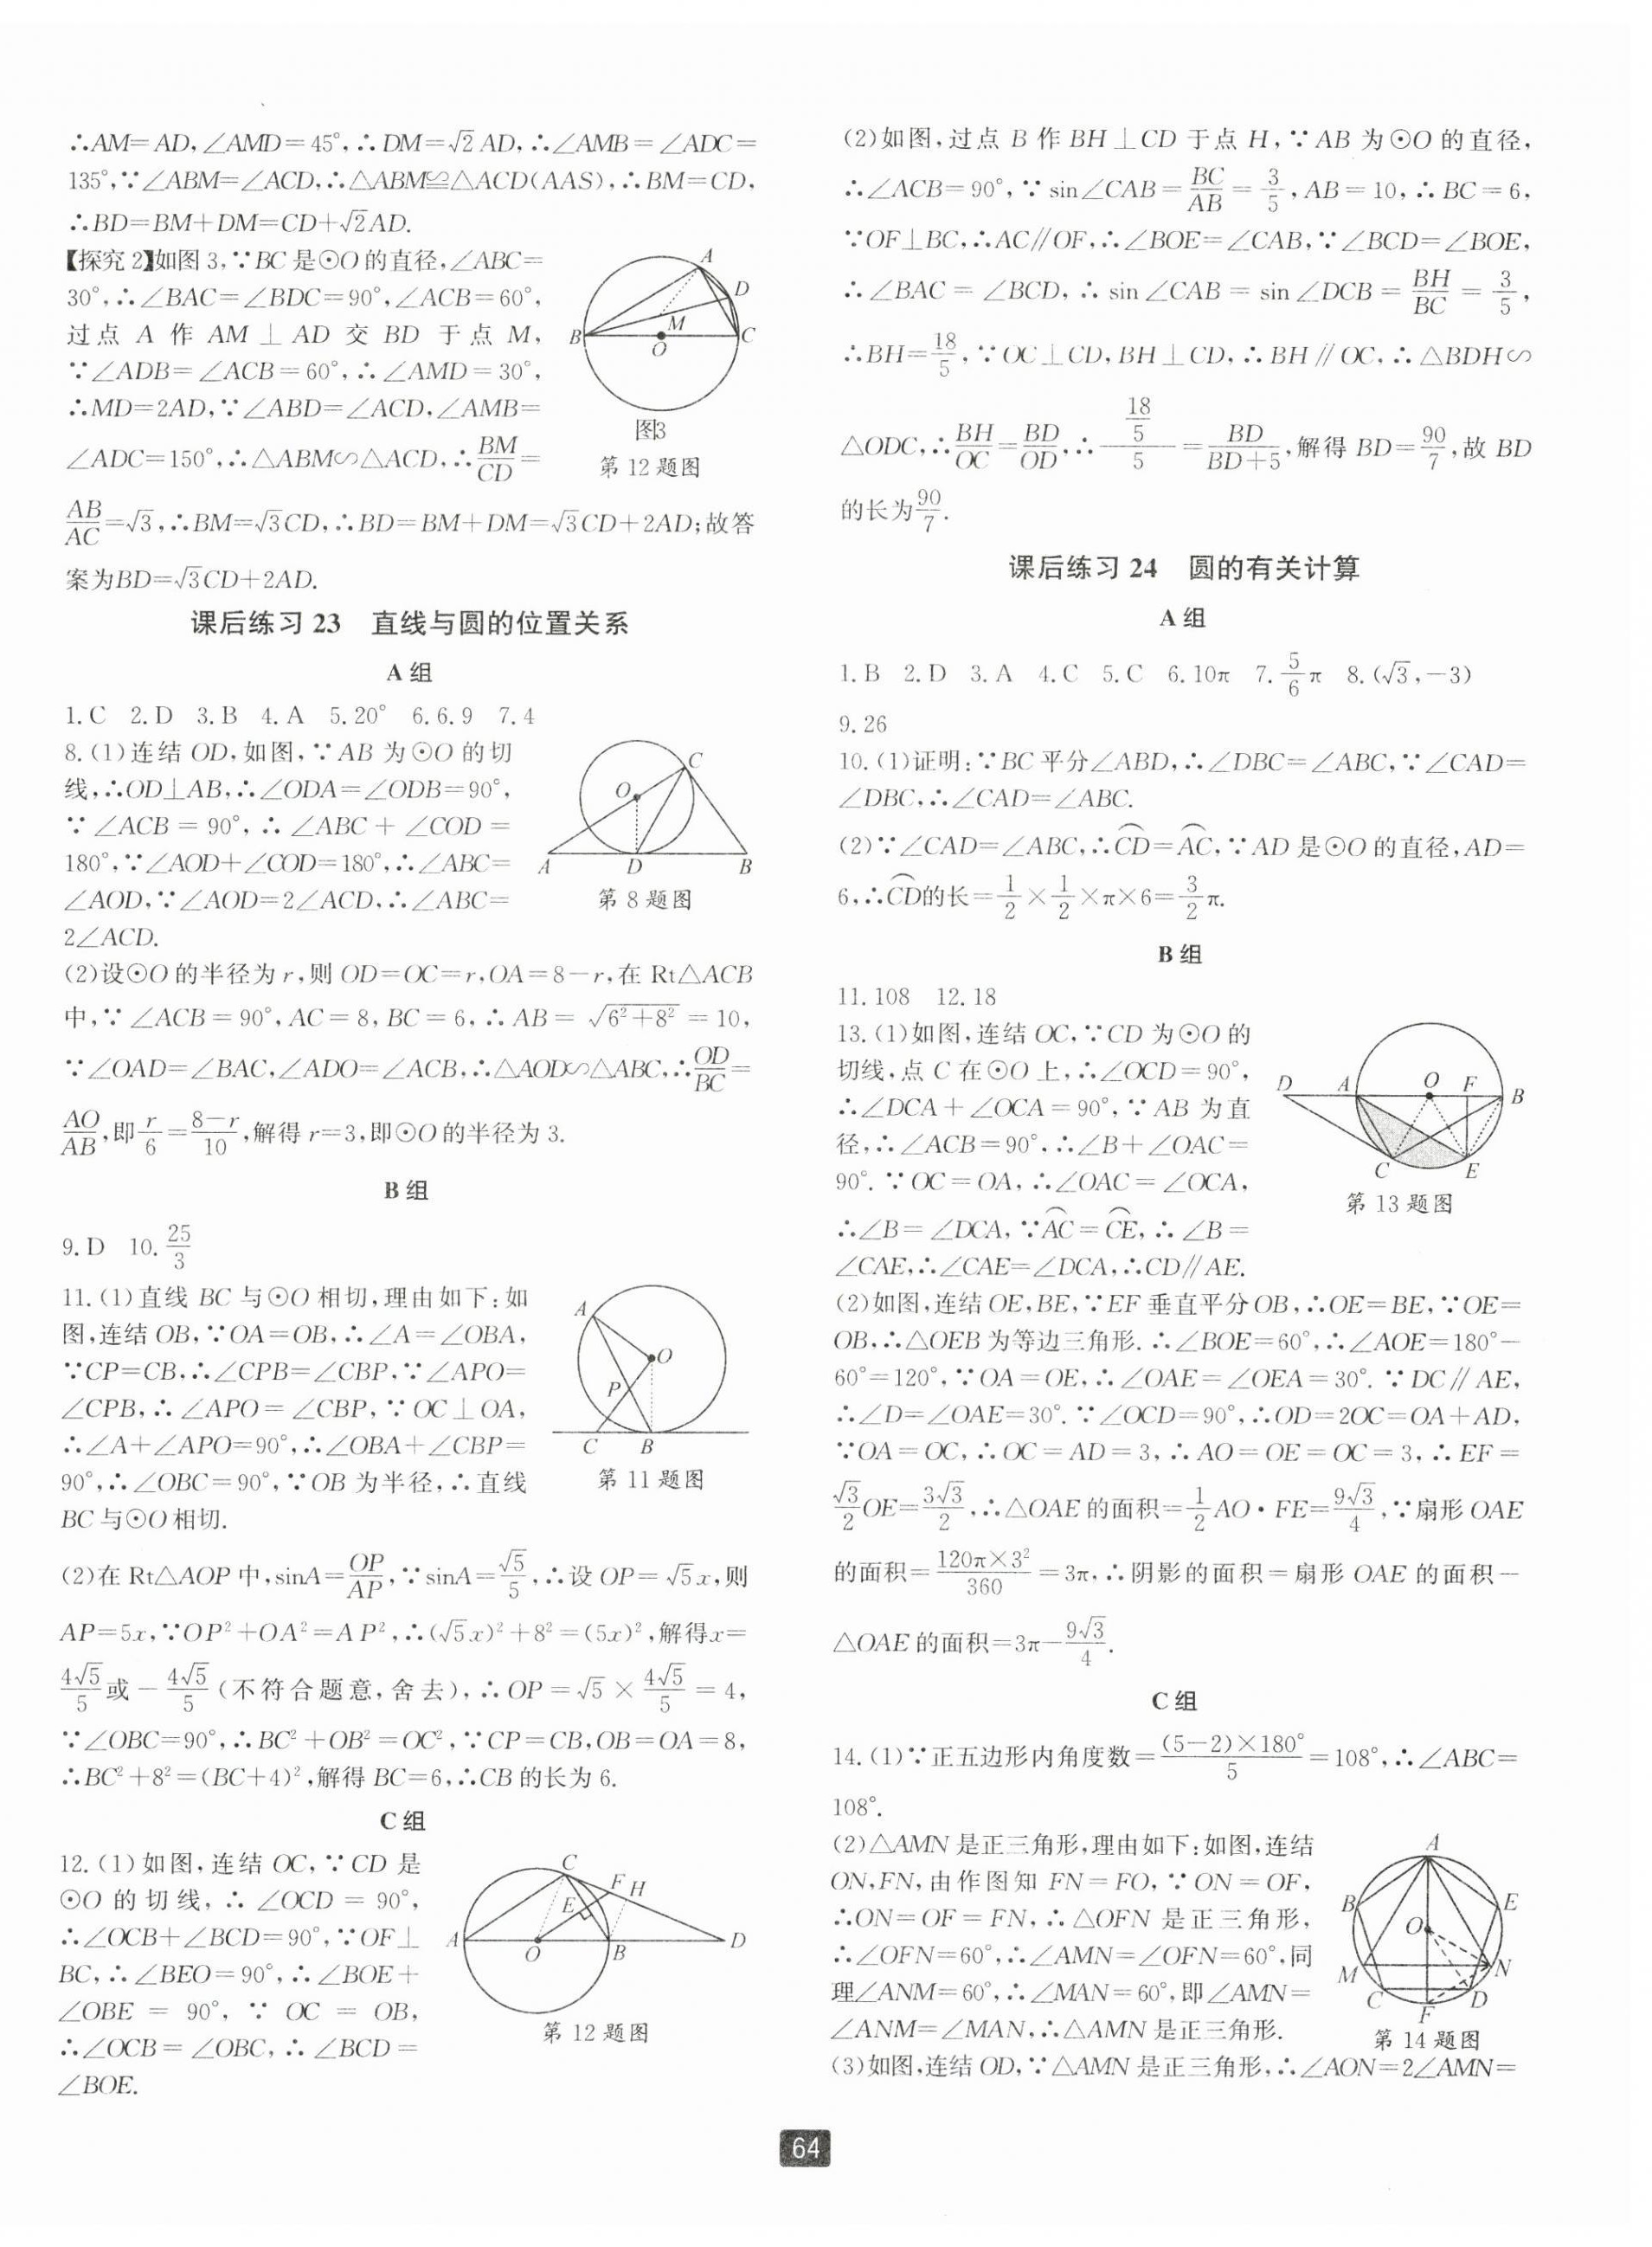 ∴AM=AD,∠AMD=45°,∴DM=√2 AD,∴∠AMB=∠ADC=
135°,∵∠ABM=∠ACD,∴△ABM≌△ACD(AAS),∴BM=CD,
∴BD=BM+DM=CD+√2AD.
【探究2】如图3,∵BC是⊙O的直径,∠ABC=
30°,∴∠BAC=∠BDC=90°,∠ACB=60°,
过点 A 作 AM⊥AD 交 BD 于点 M,
∵∠ADB=∠ACB=60°,∴∠AMD=30°,
∴MD=2AD,∵∠ABD=∠ACD,∠AMB=
∠ADC=150°,∴△ABM∽△ACD,∴BM/CD=
A
D
B
M
O
C
图3
第12题图
AB/AC=√3,∴BM=√3CD,∴BD=BM+DM=√3CD+2AD;故答
案为BD=√3CD+2AD.
课后练习23 直线与圆的位置关系
A组
1.C 2.D 3.B 4.A 5.20° 6.6.9 7.4
8.(1)连结OD,如图,∵AB为⊙O的切
线,∴OD⊥AB,∴∠ODA=∠ODB=90°,
∵∠ACB=90°,∴∠ABC+∠COD=
180°,∵∠AOD+∠COD=180°,∴∠ABC=
∠AOD,∵∠AOD=2∠ACD,∴∠ABC=
2∠ACD.
C
O
A
D
B
第8题图
(2)设⊙O的半径为r,则OD=OC=r,OA=8-r,在Rt△ACB
中,∵∠ACB=90°,AC=8,BC=6,∴AB=√(6²+8²)=10,
∵∠OAD=∠BAC,∠ADO=∠ACB,∴△AOD∽△ABC,∴OD/BC=
AO/AB,即r/6=(8-r)/10,解得r=3,即⊙O的半径为3.
B组
9.D 10.25/3
11.(1)直线BC与⊙O相切,理由如下:如
图,连结OB,∵OA=OB,∴∠A=∠OBA,
∵CP=CB,∴∠CPB=∠CBP,∵∠APO=
∠CPB,∴∠APO=∠CBP,∵OC⊥OA,
∴∠A+∠APO=90°,∴∠OBA+∠CBP=
90°,∴∠OBC=90°,∵OB为半径,∴直线
BC与⊙O相切.
A
O
P
C
B
第11题图
(2)在Rt△AOP中,sinA=OP/AP,∵sinA=√5/5,∴设OP=√5x,则
AP=5x,∵OP²+OA²=AP²,∴(√5x)²+8²=(5x)²,解得x=
4√5/5或-4√5/5(不符合题意,舍去),∴OP=√5×4√5/5=4,
∵∠OBC=90°,∴BC²+OB²=OC²,∵CP=CB,OB=OA=8,
∴BC²+8²=(BC+4)²,解得BC=6,∴CB的长为6.
C组
12.(1)如图,连结OC,∵CD是
⊙O的切线,∴∠OCD=90°,
∴∠OCB+∠BCD=90°,∵OF⊥
BC,∴∠BEO=90°,∴∠BOE+
∠OBE=90°,∵OC=OB,
∴∠OCB=∠OBC,∴∠BCD=
∠BOE.
C
F
H
E
A
O
B
D
第12题图
(2)如图,过点B作BH⊥CD于点H,∵AB为⊙O的直径,
∴∠ACB=90°,∵sin∠CAB=BC/AB=3/5,AB=10,∴BC=6,
∵OF⊥BC,∴AC∥OF,∴∠BOE=∠CAB,∵∠BCD=∠BOE,
∴∠BAC=∠BCD,∴sin∠CAB=sin∠DCB=BH/BC=3/5,
∴BH=18/5,∵OC⊥CD,BH⊥CD,∴BH∥OC,∴△BDH∽
△ODC,∴BH/OC=BD/OD,∴(18/5)/5=BD/(BD+5),解得BD=90/7,故BD
的长为90/7.
课后练习24 圆的有关计算
A组
1.B 2.D 3.A 4.C 5.C 6.10π 7.5/6π 8.(√3,-3)
9.26
10.(1)证明:∵BC平分∠ABD,∴∠DBC=∠ABC,∵∠CAD=
∠DBC,∴∠CAD=∠ABC.
(2)∵∠CAD=∠ABC,∴⌒CD=⌒AC,∵AD是⊙O的直径,AD=
6,∴⌒CD的长=1/2×1/2×π×6=3/2π.
B组
11.108 12.18
13.(1)如图,连结OC,∵CD为⊙O的
切线,点C在⊙O上,∴∠OCD=90°,
∴∠DCA+∠OCA=90°,∵AB为直
径,∴∠ACB=90°,∴∠B+∠OAC=
90°.∵OC=OA,∴∠OAC=∠OCA,
∴∠B=∠DCA,∵⌒AC=⌒CE,∴∠B=
∠CAE,∴∠CAE=∠DCA,∴CD∥AE.
D
A
O
F
B
C
E
第13题图
(2)如图,连结OE,BE,∵EF垂直平分OB,∴OE=BE,∵OE=
OB,∴△OEB为等边三角形.∴∠BOE=60°,∴∠AOE=180°-
60°=120°,∵OA=OE,∴∠OAE=∠OEA=30°.∵DC∥AE,
∴∠D=∠OAE=30°.∵∠OCD=90°,∴OD=2OC=OA+AD,
∵OA=OC,∴OC=AD=3,∴AO=OE=OC=3,∴EF=
√3/2OE=3√3/2,∴△OAE的面积=1/2AO·FE=9√3/4,∵扇形OAE
的面积=120π×3²/360=3π,∴阴影的面积=扇形OAE的面积-
△OAE的面积=3π-9√3/4.
C组
14.(1)∵正五边形内角度数=(5-2)×180°/5=108°,∴∠ABC=
108°.
(2)△AMN是正三角形,理由如下:如图,连结
ON,FN,由作图知FN=FO,∵ON=OF,
∴ON=OF=FN,∴△OFN是正三角形,
∴∠OFN=60°,∴∠AMN=∠OFN=60°,同
理∠ANM=60°,∴∠MAN=60°,即∠AMN=
∠ANM=∠MAN,∴△AMN是正三角形.
A
B
E
O
M
N
C
F
D
第14题图
(3)如图,连结OD,∵△AMN是正三角形,∴∠AON=2∠AMN=
64